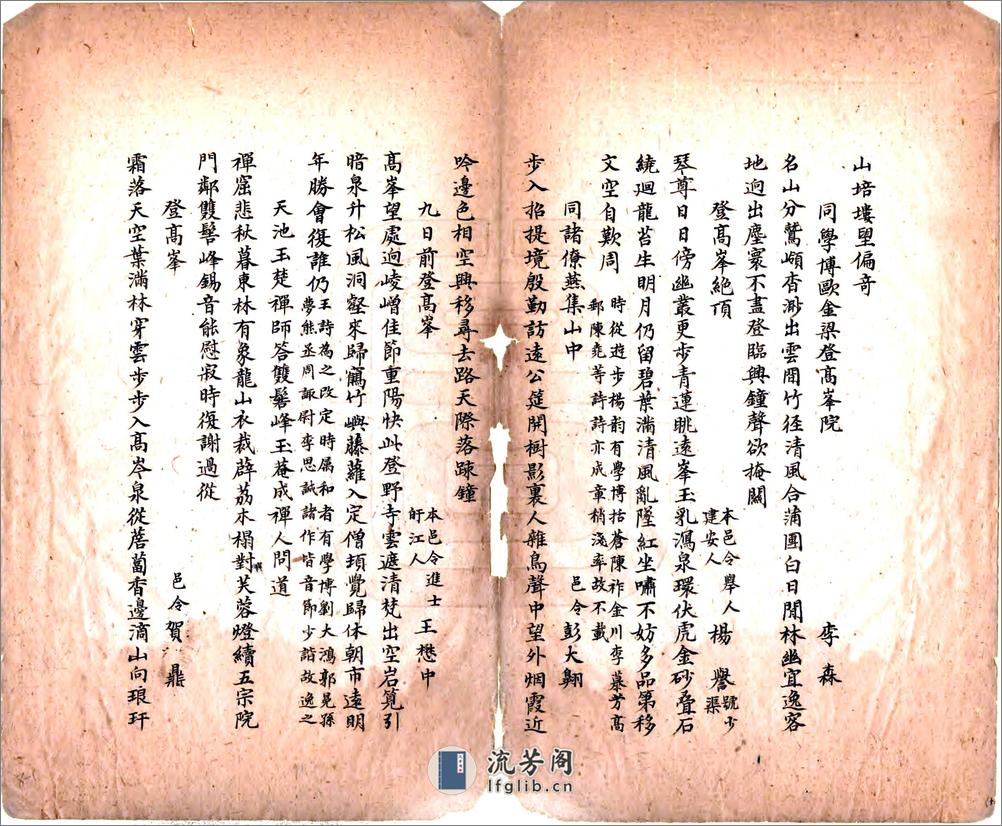 山培塿望偏奇
同學博歐金梁登高峯院 李森
名山分鷲嶺杳渺出雲間竹徑清風合蒲團白日閒林幽宜逸客
地逈出塵寰不盡登臨興鐘聲欲掩關
登高峯絕頂 本邑令舉人建安人 楊譽 號少渠
琴尊日日傍幽叢更步青蓮眺遠峯玉乳瀉泉環伏虎金砂疊石
繞廻龍苔生明月仍留碧葉滿清風亂墜紅坐嘯不妨多品第移
文空自歎周 時從遊步楊韵有學博括蒼陳祚金川李葇芳高郵陳堯等詩詩亦成章稍淺率故不載
同諸僚燕集山中 邑令彭大翱
步入招提境殷勤訪遠公筵開樹影裏人雜鳥聲中望外烟霞近
吟邊色相空興移尋去路天際落踈鐘
九日前登高峯 本邑令進士盱江人 王懋中
高峯望處逈崚嶒佳節重陽快此登野寺雲遮清梵出空岩筧引
暗泉升松風洞壑來歸鶴竹嶼藤蘿入定僧頓覺歸休朝市遠明
年勝會復誰仍 王詩為之改定時属和者有學博劉大鴻郭晃孫夢熊丞周諏尉李思誠諸作皆音節少諧故逸之
天池玉楚禪師答雙髻峰玉菴成禪人問道
禪窟悲秋暮東林有象龍山衣裁薜荔木榻對芙蓉燈續五宗院
門鄰雙髻峰錫音能慰寂時復謝過從
登高峯 邑令賀鼎
霜落天空葉滿林穿雲步步入高岑泉從菖蔔香邊滴山向琅玕
流芳阁
lfglib.cn